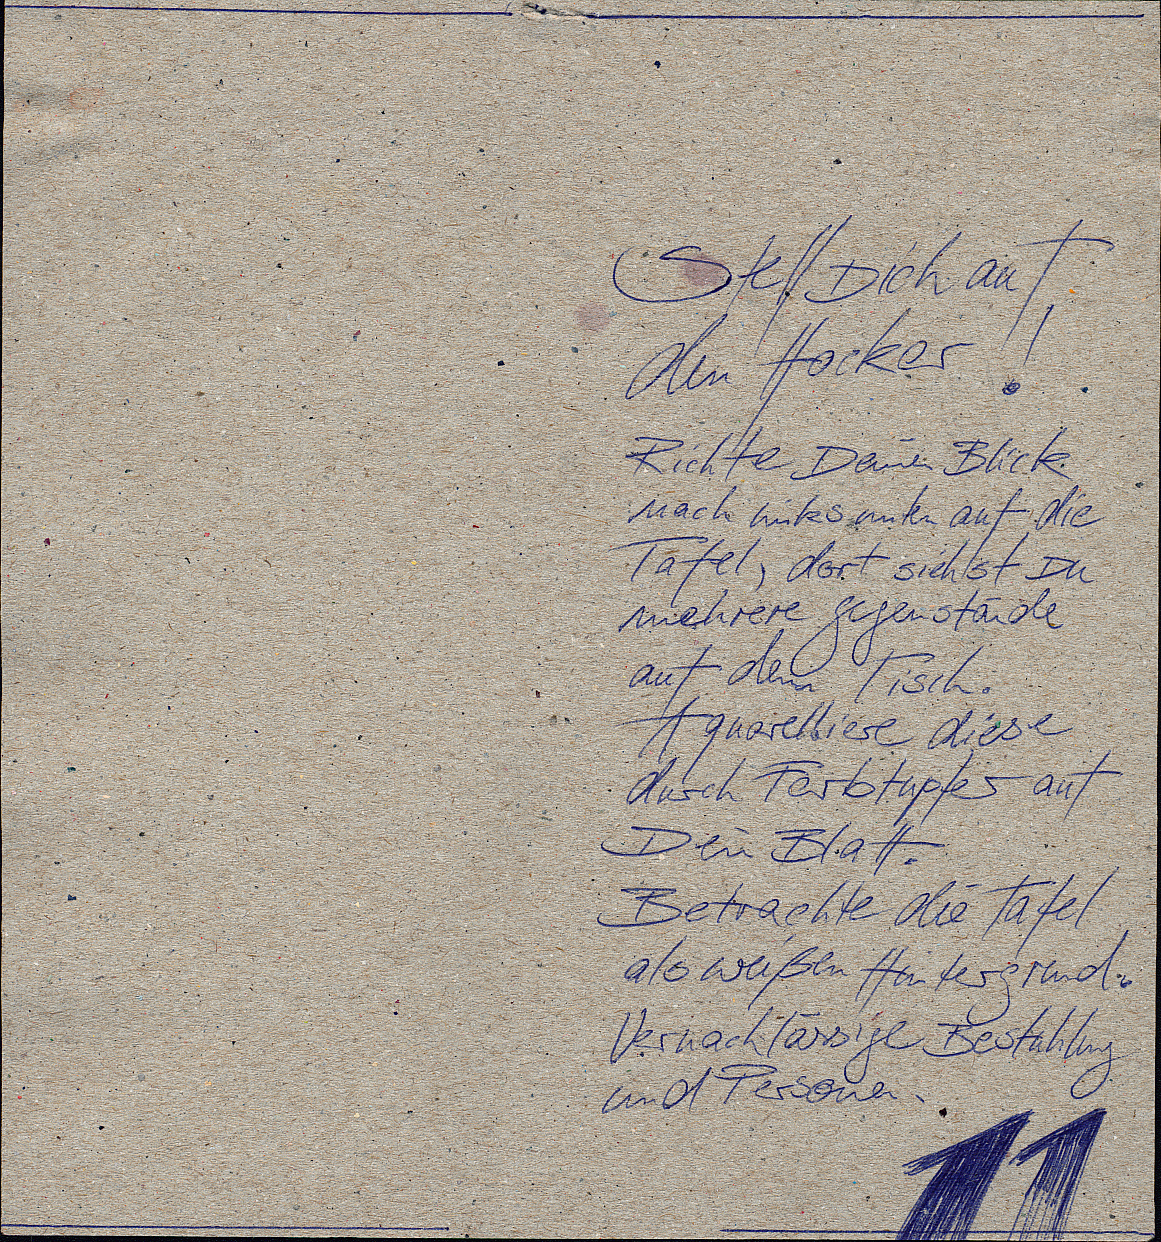 Stell Dich auf
den Hocker!
Richte Deinen Blick
nach links unten auf die
Tafel, dort siehst Du
mehrere gegenstände
auf dem Tisch.
Aquarelliere diese
durch Farbtupfer auf
Dein Blatt.
Betrachte die Tafel
als weißen Hintergrund.
Vernachlässige Bestuhlung
und Personen.
11